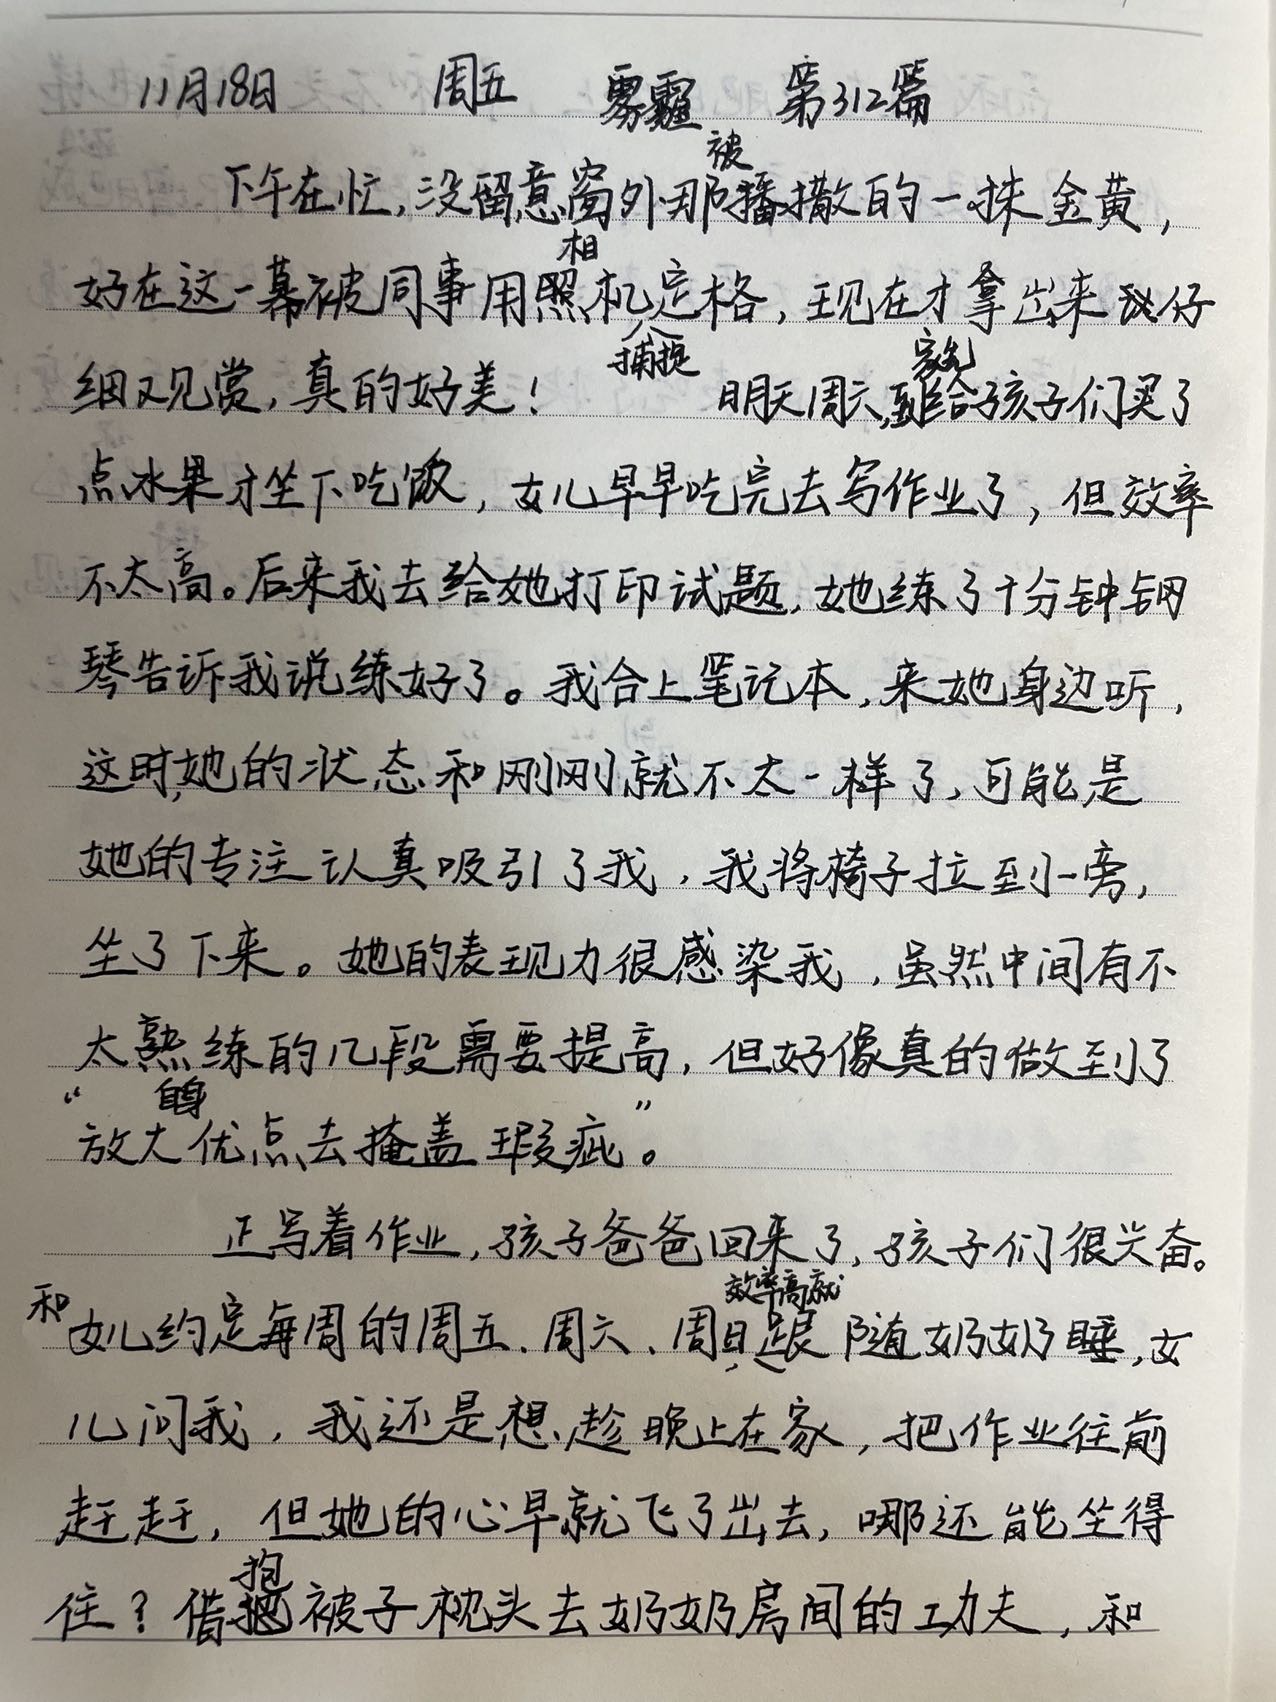 11月18日 周五 雾霾 第312篇
被
下午在忙,没留意窗外那播撒的一抹金黄,
相
好在这一幕被同事用照机定格,现在才拿出来仔
捕捉
细观赏,真的好美! 明天周六,给孩子们买了
点水果才坐下吃饭,女儿早早吃完去写作业了,但效率
不太高。后来我去给她打印试题,她练了十分钟钢
琴告诉我说练好了。我合上笔记本,来她身边听,
这时,她的状态和刚刚就不太一样了,可能是
她的专注认真吸引了我,我将椅子拉到一旁,
坐了下来。她的表现力很感染我,虽然中间有不
太熟练的几段需要提高,但好像真的做到了
自身
“放大优点去掩盖瑕疵”。
正写着作业,孩子爸爸回来了,孩子们很兴奋。
效率高就
和女儿约定每周的周五、周六、周日跟随奶奶睡,女
儿问我,我还是想趁晚上在家,把作业往前
赶赶,但她的心早就飞了出去,哪还能坐得
抱
住?借被子枕头去奶奶房间的功夫,和